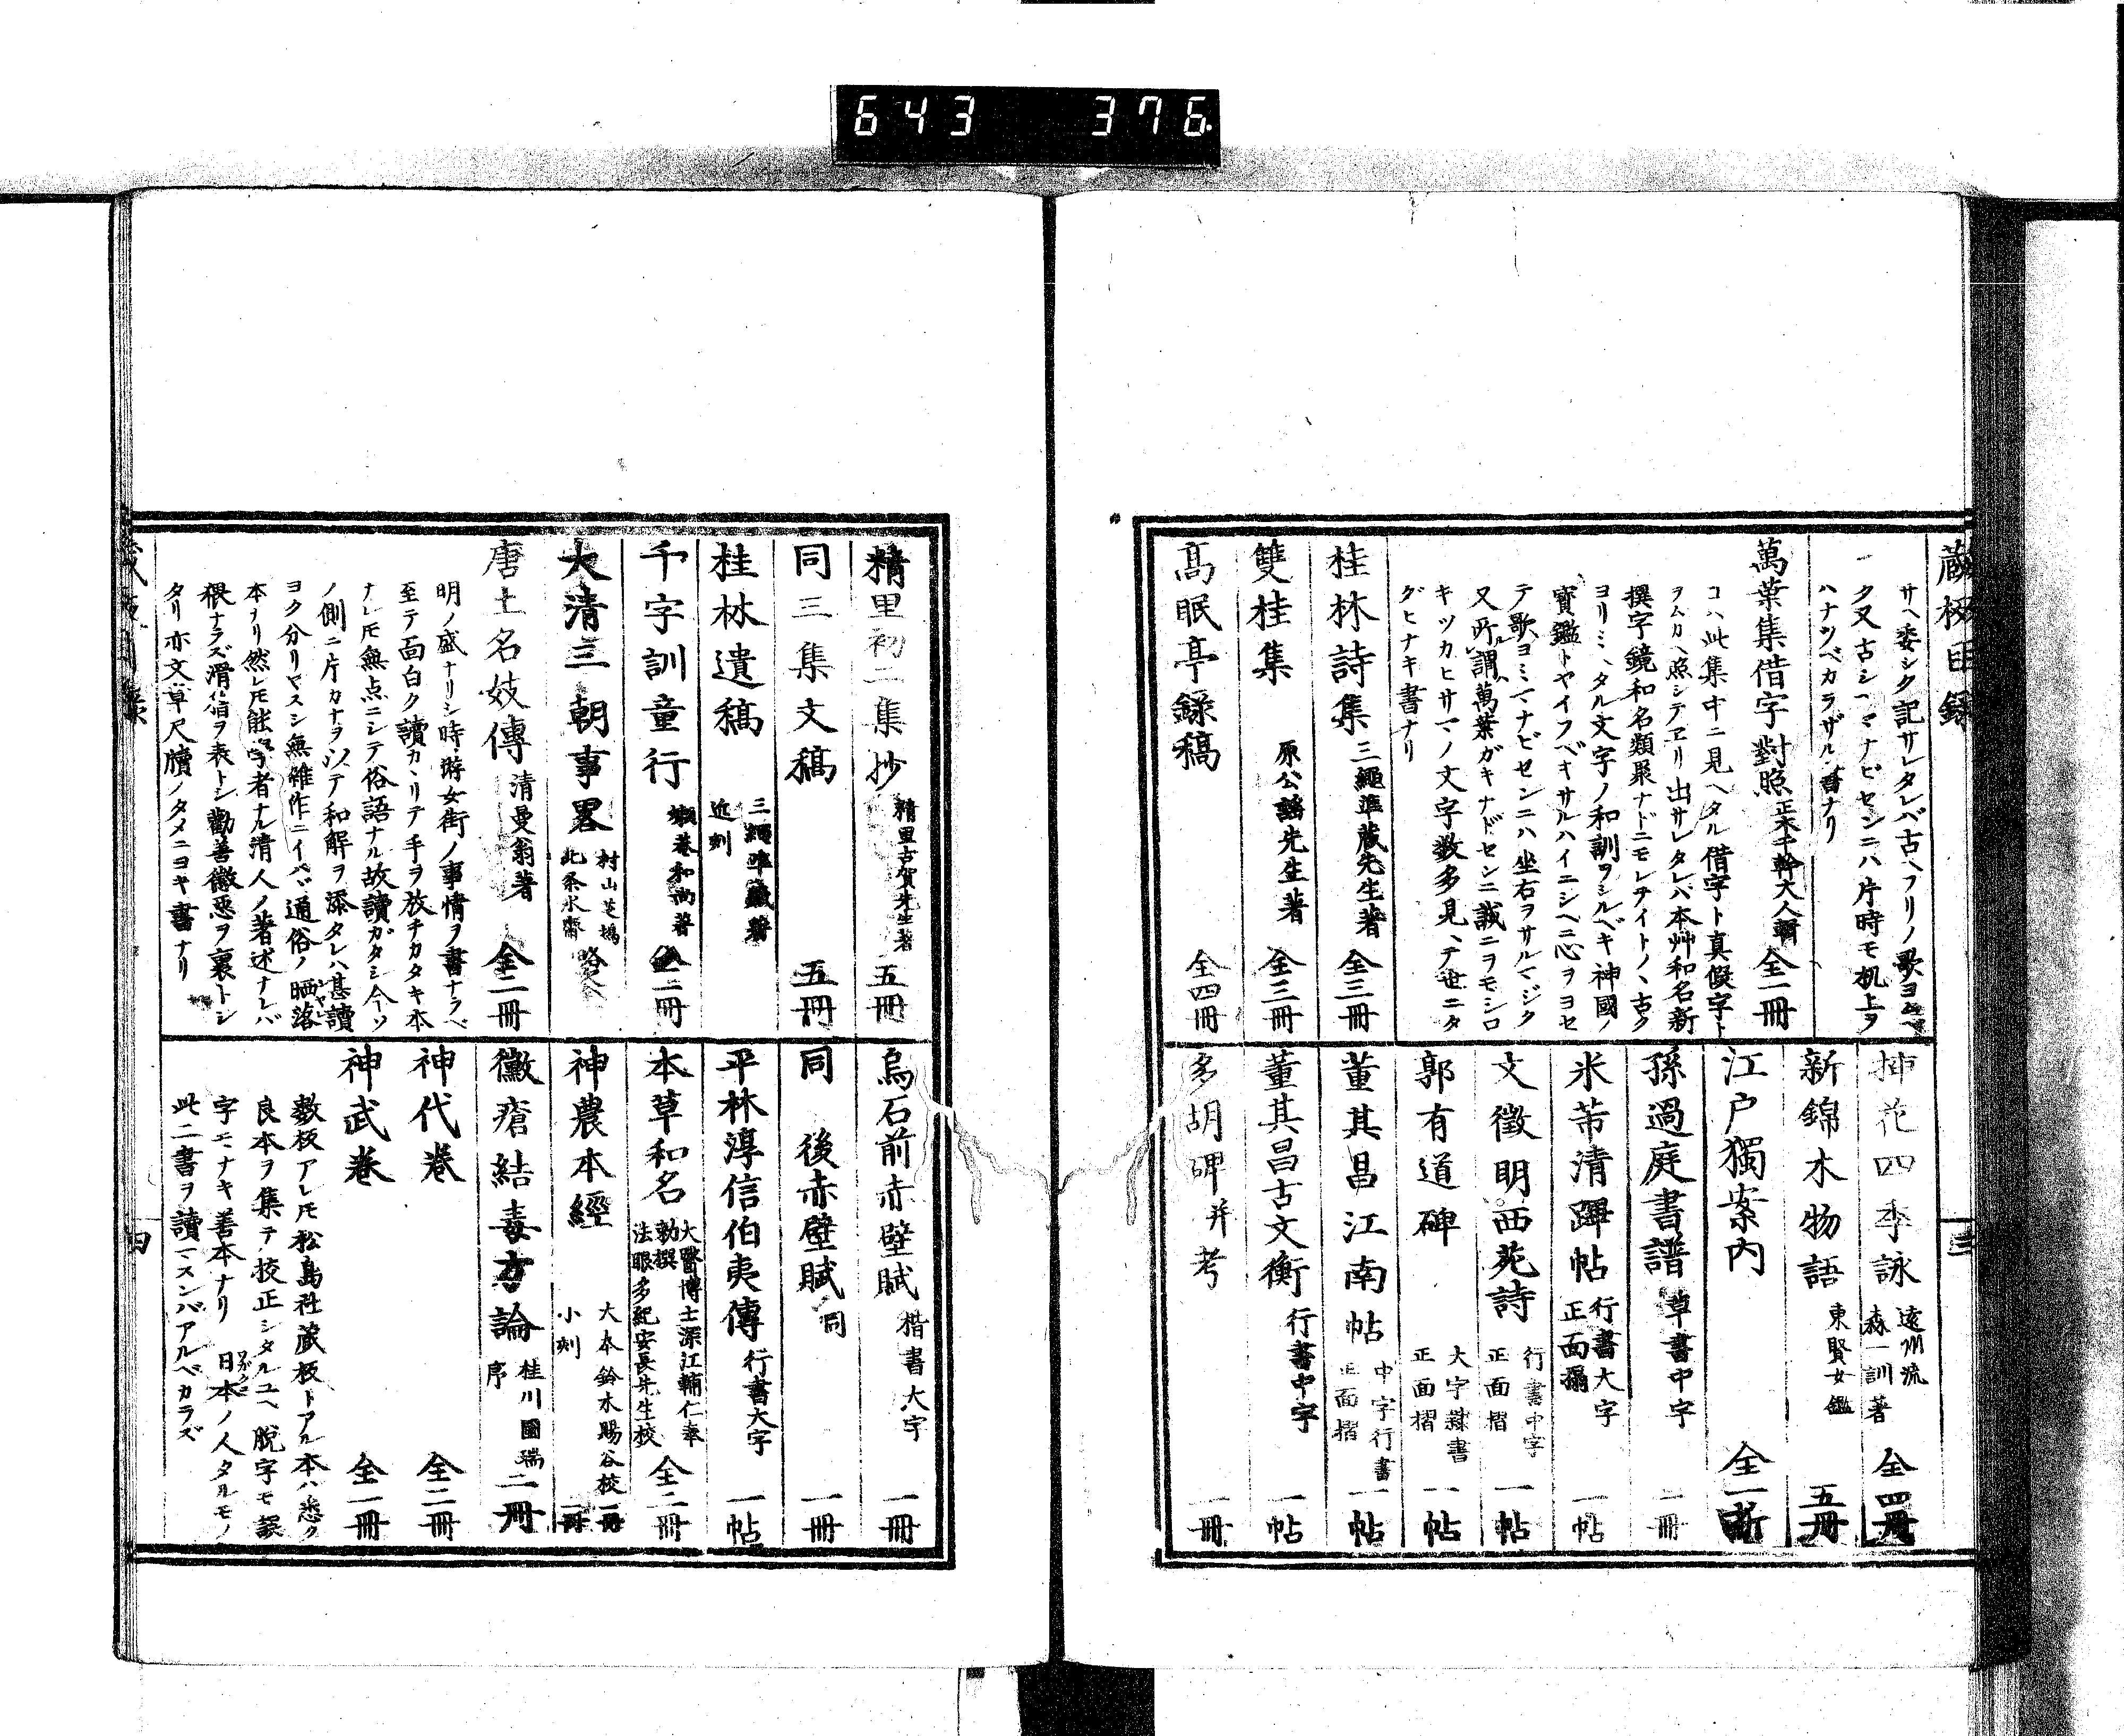 643 376
蔵板目録
サヘ委シク記サレタレバ古ヘフリノ歌ヨム
ク又古シヘマナビセンニハ片時モ机上ヲ
ハナツベカラザル書ナリ
萬葉集借字對照 正木千幹大人輯 全一冊
コハ此集中ニ見ヘタル借字ト真假字ト
ヲムカヘ照シテヱリ出サレタレバ本艸和名新
撰字鏡和名類聚ナドニモレテイト〳〵古ク
ヨリミヘタル文字ノ和訓ヲシルベキ神國ノ
寳鑑トヤイフベキサルハイニシヘニ心ヲヨセ
テ歌ヨミマナビセンニハ坐右ヲサルマジク
又所謂萬葉ガキナドセンニ誠ニヲモシロ
キツカヒサマノ文字数多見ヘテ世ニタ
グヒナキ書ナリ
桂林詩集 三繩準藏先生著 全三冊
雙桂集 原公謡先生著 全三冊
髙眠亭録稿 全四冊
挿花四季詠 遠州流 森一訓著 全四冊
新錦木物語 東賢女鑑 五冊
江戸獨案内 全一
孫過庭書譜 草書中字 一冊
米芾清蹕帖 行書大字 正面摺 一帖
文徴明西苑詩 行書中字 正面摺 一帖
郭有道碑 大字隷書 正面摺 一帖
董其昌江南帖 中字行書 正面摺 一帖
董其昌古文衡 行書中字 一帖
多胡碑并考 一冊
精里初二集抄 精里古賀先生著 五冊
同三集文稿 五冊
桂林遺稿 三繩準藏著 近刻
千字訓童行 和尚著 全二冊
大清三朝事畧 村山芝塢 北条水齋
唐土名妓傳 清曼翁著 全二冊
明ノ盛ナリシ時游女街ノ事情ヲ書ナラベ
至テ面白ク讀カヽリテ手ヲ放チカタキ本
ナレ𪜈無点ニシテ俗語ナル故讀ガタシ今ソ
ノ側ニ片カナヲ以テ和解ヲ添タレハ甚讀
ヨク分リヤスシ無雑作ニイハヾ通俗ノ晒落
本ナリ然レ𪜈能学者ナル清人ノ著述ナレバ
猥ナラズ滑稽ヲ表トシ勸善懲惡ヲ裏トシ
タリ亦文章尺牘ノタメニヨキ書ナリ
烏石前赤壁賦 楷書大字 一冊
同後赤壁賦 同 一冊
平林淳信伯夷傳 行書大字 一帖
本草和名 大醫博士深江輔仁奉勅撰 法眼多紀安長先生校 全二冊
神農本經 大本鈴木賜谷校 一冊 小刻 一冊
黴瘡結毒方論 桂川國瑞序 二冊
神代巻 全二冊
神武巻 全一冊
數板アレ𪜈松島社蔵板トアル本ハ悉ク
良本ヲ集テ校正シタルユヘ脱字モ誤
字モナキ善本ナリ 日本ノ人タルモノ
此二書ヲ讀マスンバアルベカラズ
四